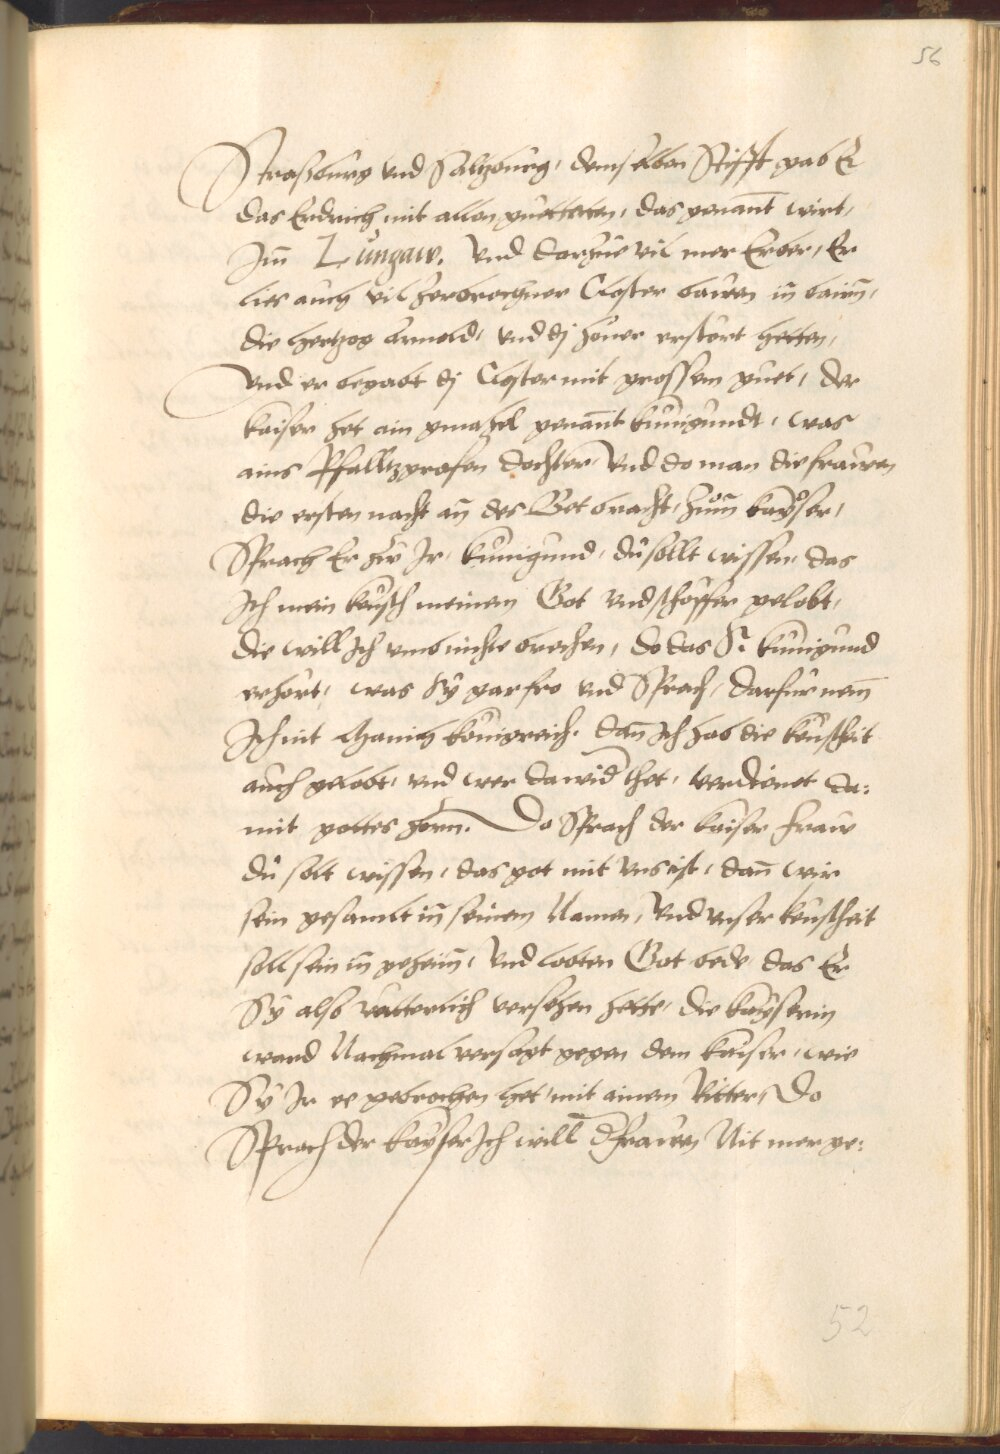 56
Straßburg vnd Saltzburg, demselben Stifft gab Er
das Erdrich mit allen guettern, das genant wirt,
Im̄ Lungaw. Vnd darzue vil mer Erber, Er
lies auch vil zerbrochner Closter bawen in bairn,
die hertzog Arnold, vnd dj hŭner erstört hetten,
Vnd er begabt dj Closter mit grossem guet, der
kaiser het ain gmahel genant kunigundt, was
ains Pfalltzgrafen dochter, Vnd do man die frawen
die ersten nacht an des Bet bracht, zum kayser,
Sprach Er zŭ Ir, kunigund, du sollt wissen, das
Ich mein keusch meinem Got vnd schöffer gelobt,
die will Ich vmb nichte brechen, do das S. kunigund
erhört, was Sy gar fro vnd Sprach, darfür nem
Ich nit Manich königreich. dan̄ Ich hab die keuschait
auch gelobt, vnd wer dawid thet, verdienet da:
mit gottes zorn. Do Sprach der kaiser fraw
du solt wissen, das got mit vns ist, dan̄ wir
sein gesamlt in seinem Namen, Vnd vnser keuscheit
soll sein in geheim, Vnd lobten Got bede das Er
Sy also vätterlich versehen hette, die kayserin
ward Nachmal versagt gegen dem kaiser, wie
Sy Ir ee gebrochen het, mit ainem Ritter, Do
Sprach der kayser Ich will d̄ frawen Nit mer ge:
52